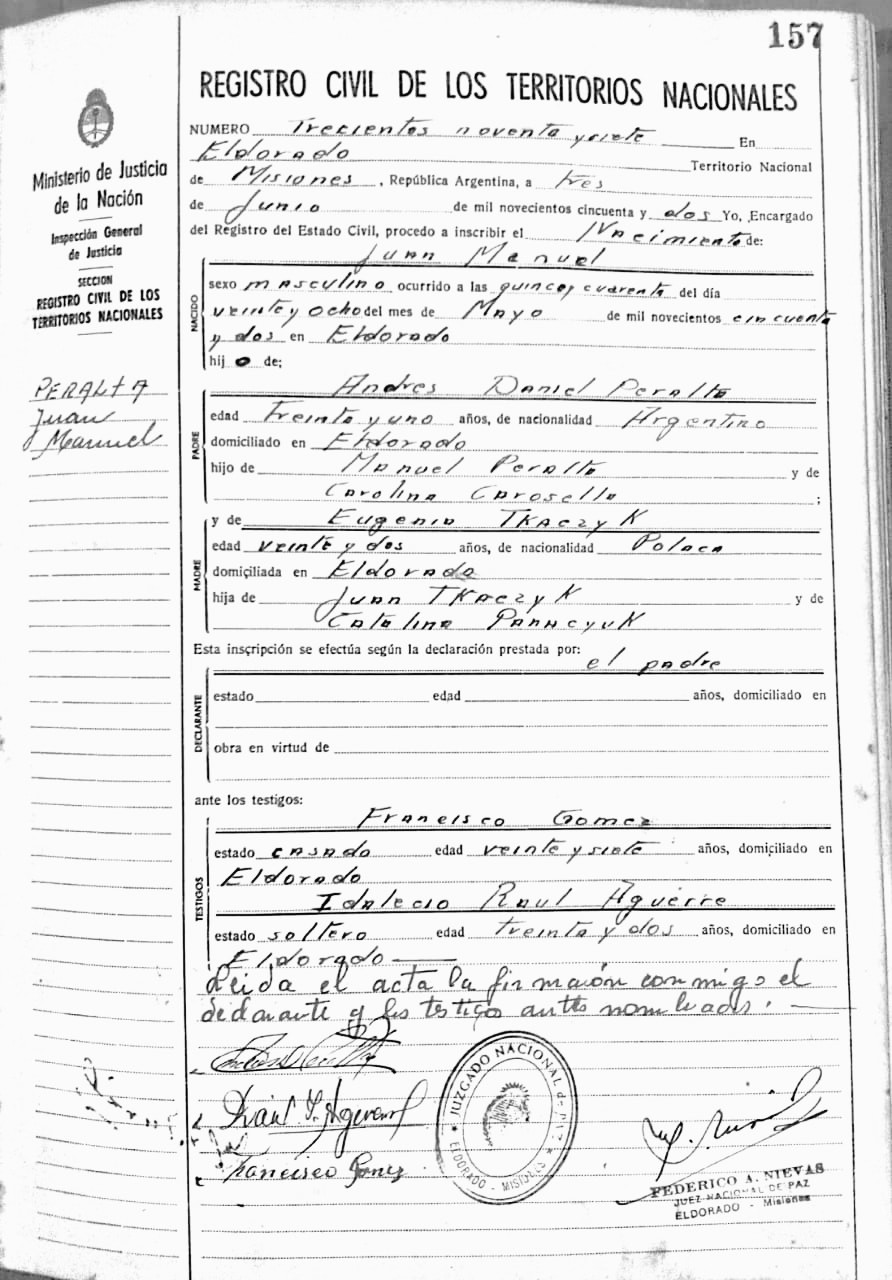 157
REGISTRO CIVIL DE LOS TERRITORIOS NACIONALES
Ministerio de Justicia
de la Nación
Inspección General
de Justicia
SECCION
REGISTRO CIVIL DE LOS
TERRITORIOS NACIONALES
PERALTA
Juan
Manuel
NUMERO Trecientos noventa y siete En
Eldorado Territorio Nacional
de Misiones, República Argentina, a tres
de Junio de mil novecientos cincuenta y dos Yo, Encargado
del Registro del Estado Civil, procedo a inscribir el Nacimiento de:
Juan Manuel
NACIDO
sexo masculino ocurrido a las quince y cuarenta del día
veinte y ocho del mes de Mayo de mil novecientos cincuenta
y dos en Eldorado
hijo de;
PADRE
Andres Daniel Peralta
edad treinta y uno años, de nacionalidad Argentino
domiciliado en Eldorado
hijo de Manuel Peralta y de
Carolina Carosella ;
MADRE
y de Eugenia TKaczyK
edad veinte y dos años, de nacionalidad Polaca
domiciliada en Eldorado
hija de Juan TKaczyK y de
Catalina PanacyuK
Esta inscripción se efectúa según la declaración prestada por:
el padre
DECLARANTE
estado edad años, domiciliado en
obra en virtud de
ante los testigos:
TESTIGOS
Francisco Gomez
estado casado edad veinte y siete años, domiciliado en
Eldorado
Idalecio Raul Aguirre
estado soltero edad treinta y dos años, domiciliado en
Eldorado
Leida el acta la firmarón conmigo el
declarante y los testigos antes nombrados.
Francisco Gomez
JUZGADO NACIONAL de PAZ
ELDORADO - MISIONES
FEDERICO A. NIEVAS
JUEZ NACIONAL DE PAZ
ELDORADO - Misiones